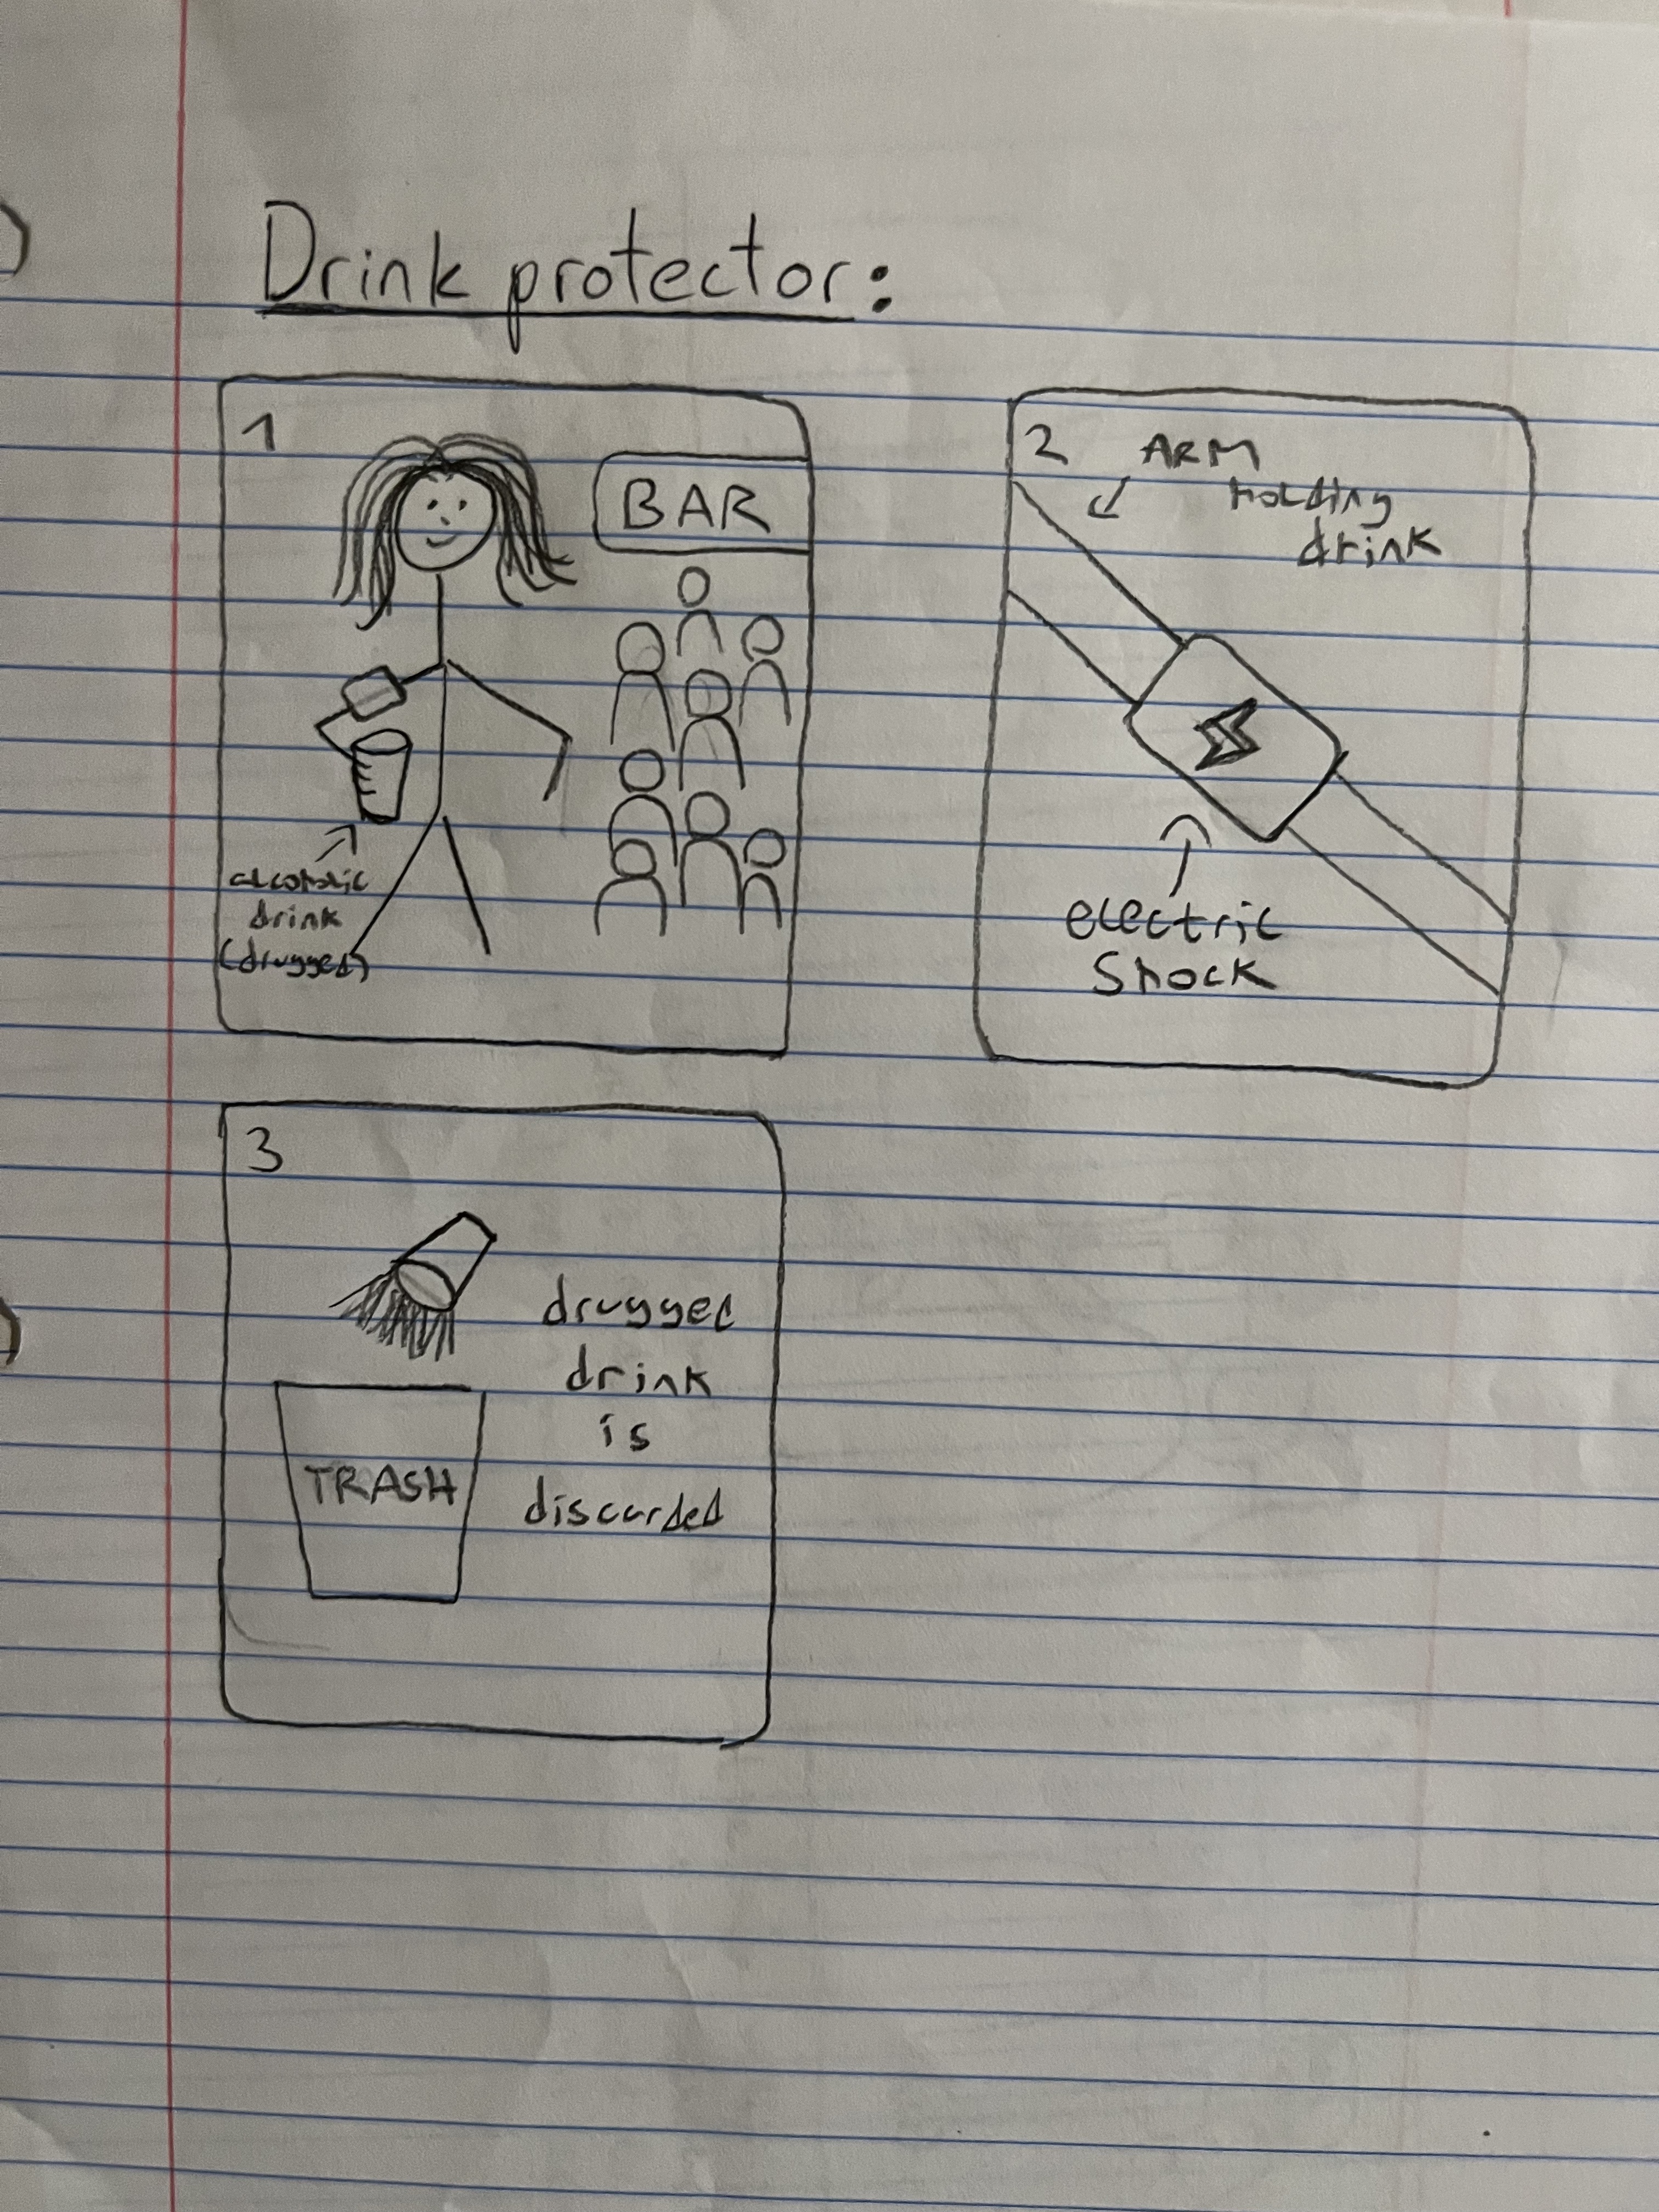 Drink protector:
1
BAR
alcoholic
drink
(drugged)
2
ARM
Holding
drink
electric
Shock
3
drugged
drink
is
discarded
TRASH